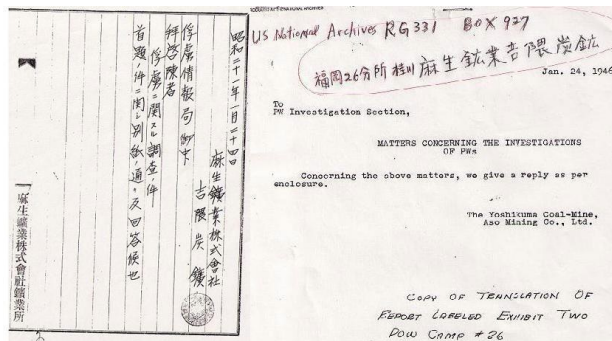 昭和二十一年一月二十四日
麻生鑛業株式會社
吉隈炭鑛
俘虜情報局 御中
俘虜ニ関スル調査件
拝啓陳者
首題件ニ関シ別紙ノ通リ及回答候也
麻生鑛業株式會社鑛業所
US National Archives RG 331 BOX 927
福岡26分所 桂川 麻生鉱業吉隈炭鉱
Jan. 24, 1946
To
PW Investigation Section,
MATTERS CONCERNING THE INVESTIGATIONS
OF PWs
Concerning the above matters, we give a reply as per
enclosure.
The Yoshikuma Coal-Mine,
Aso Mining Co., Ltd.
COPY OF TRANSLATION OF
REPORT LABELED EXHIBIT TWO
POW CAMP #26